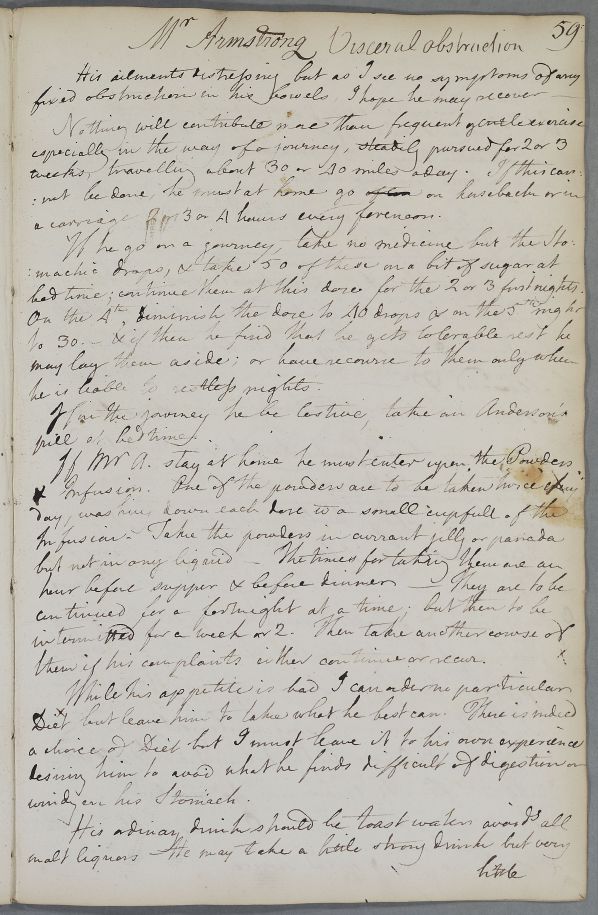 Mr Armstrong Visceral obstruction 59
His ailments distressing but as I see no symptoms of any
fixed obstruction in his bowels, I hope he may recover
Nothing will contribute more than frequent gentle exercise
especially in the way of a journey, steadily pursued for 2 or 3
weeks, travelling about 30 or 40 miles a day. If this can
: not be done, he must at home go on horseback or in
a carriage for 3 or 4 hours every forenoon.
If he go on a journey, take no medicine but the Sto:
:machic drops, & take 50 of these on a bit of sugar at
bed time; continue them at this dose for the 2 or 3 first nights.
On the 4th diminish the dose to 40 drops & on the 5th night
to 30. – & if then he find that he gets tolerable rest he
may lay them aside; or have recourse to them only when
he is liable to restless nights.
If on the journey he be costive, take an Anderson's
pill at bedtime.
If Mr A. stay at home he must enter upon the Powders
& Infusion. One of the powders are to be taken twice every
day, washing down each dose wt a small cupfull of the
Infusion – Take the powders in currant jelly or panada
but not in any liquid – The times for taking them are an
hour before supper & before dinner – They are to be
continued for a fortnight at a time; but then to be
intermitted for a week or 2. Then take another course of
them if his complaints either continue or recur.
While his appetite is bad I can order no particular
Diet but leave him to take what he best can. There is indeed
a choice of Diet but I must leave it to his own experience
desiring him to avoid what he finds difficult of digestion or
windy on his Stomach.
His ordinary drink should be toast water avoid all
malt liquors – He may take a little strong drink but very
little